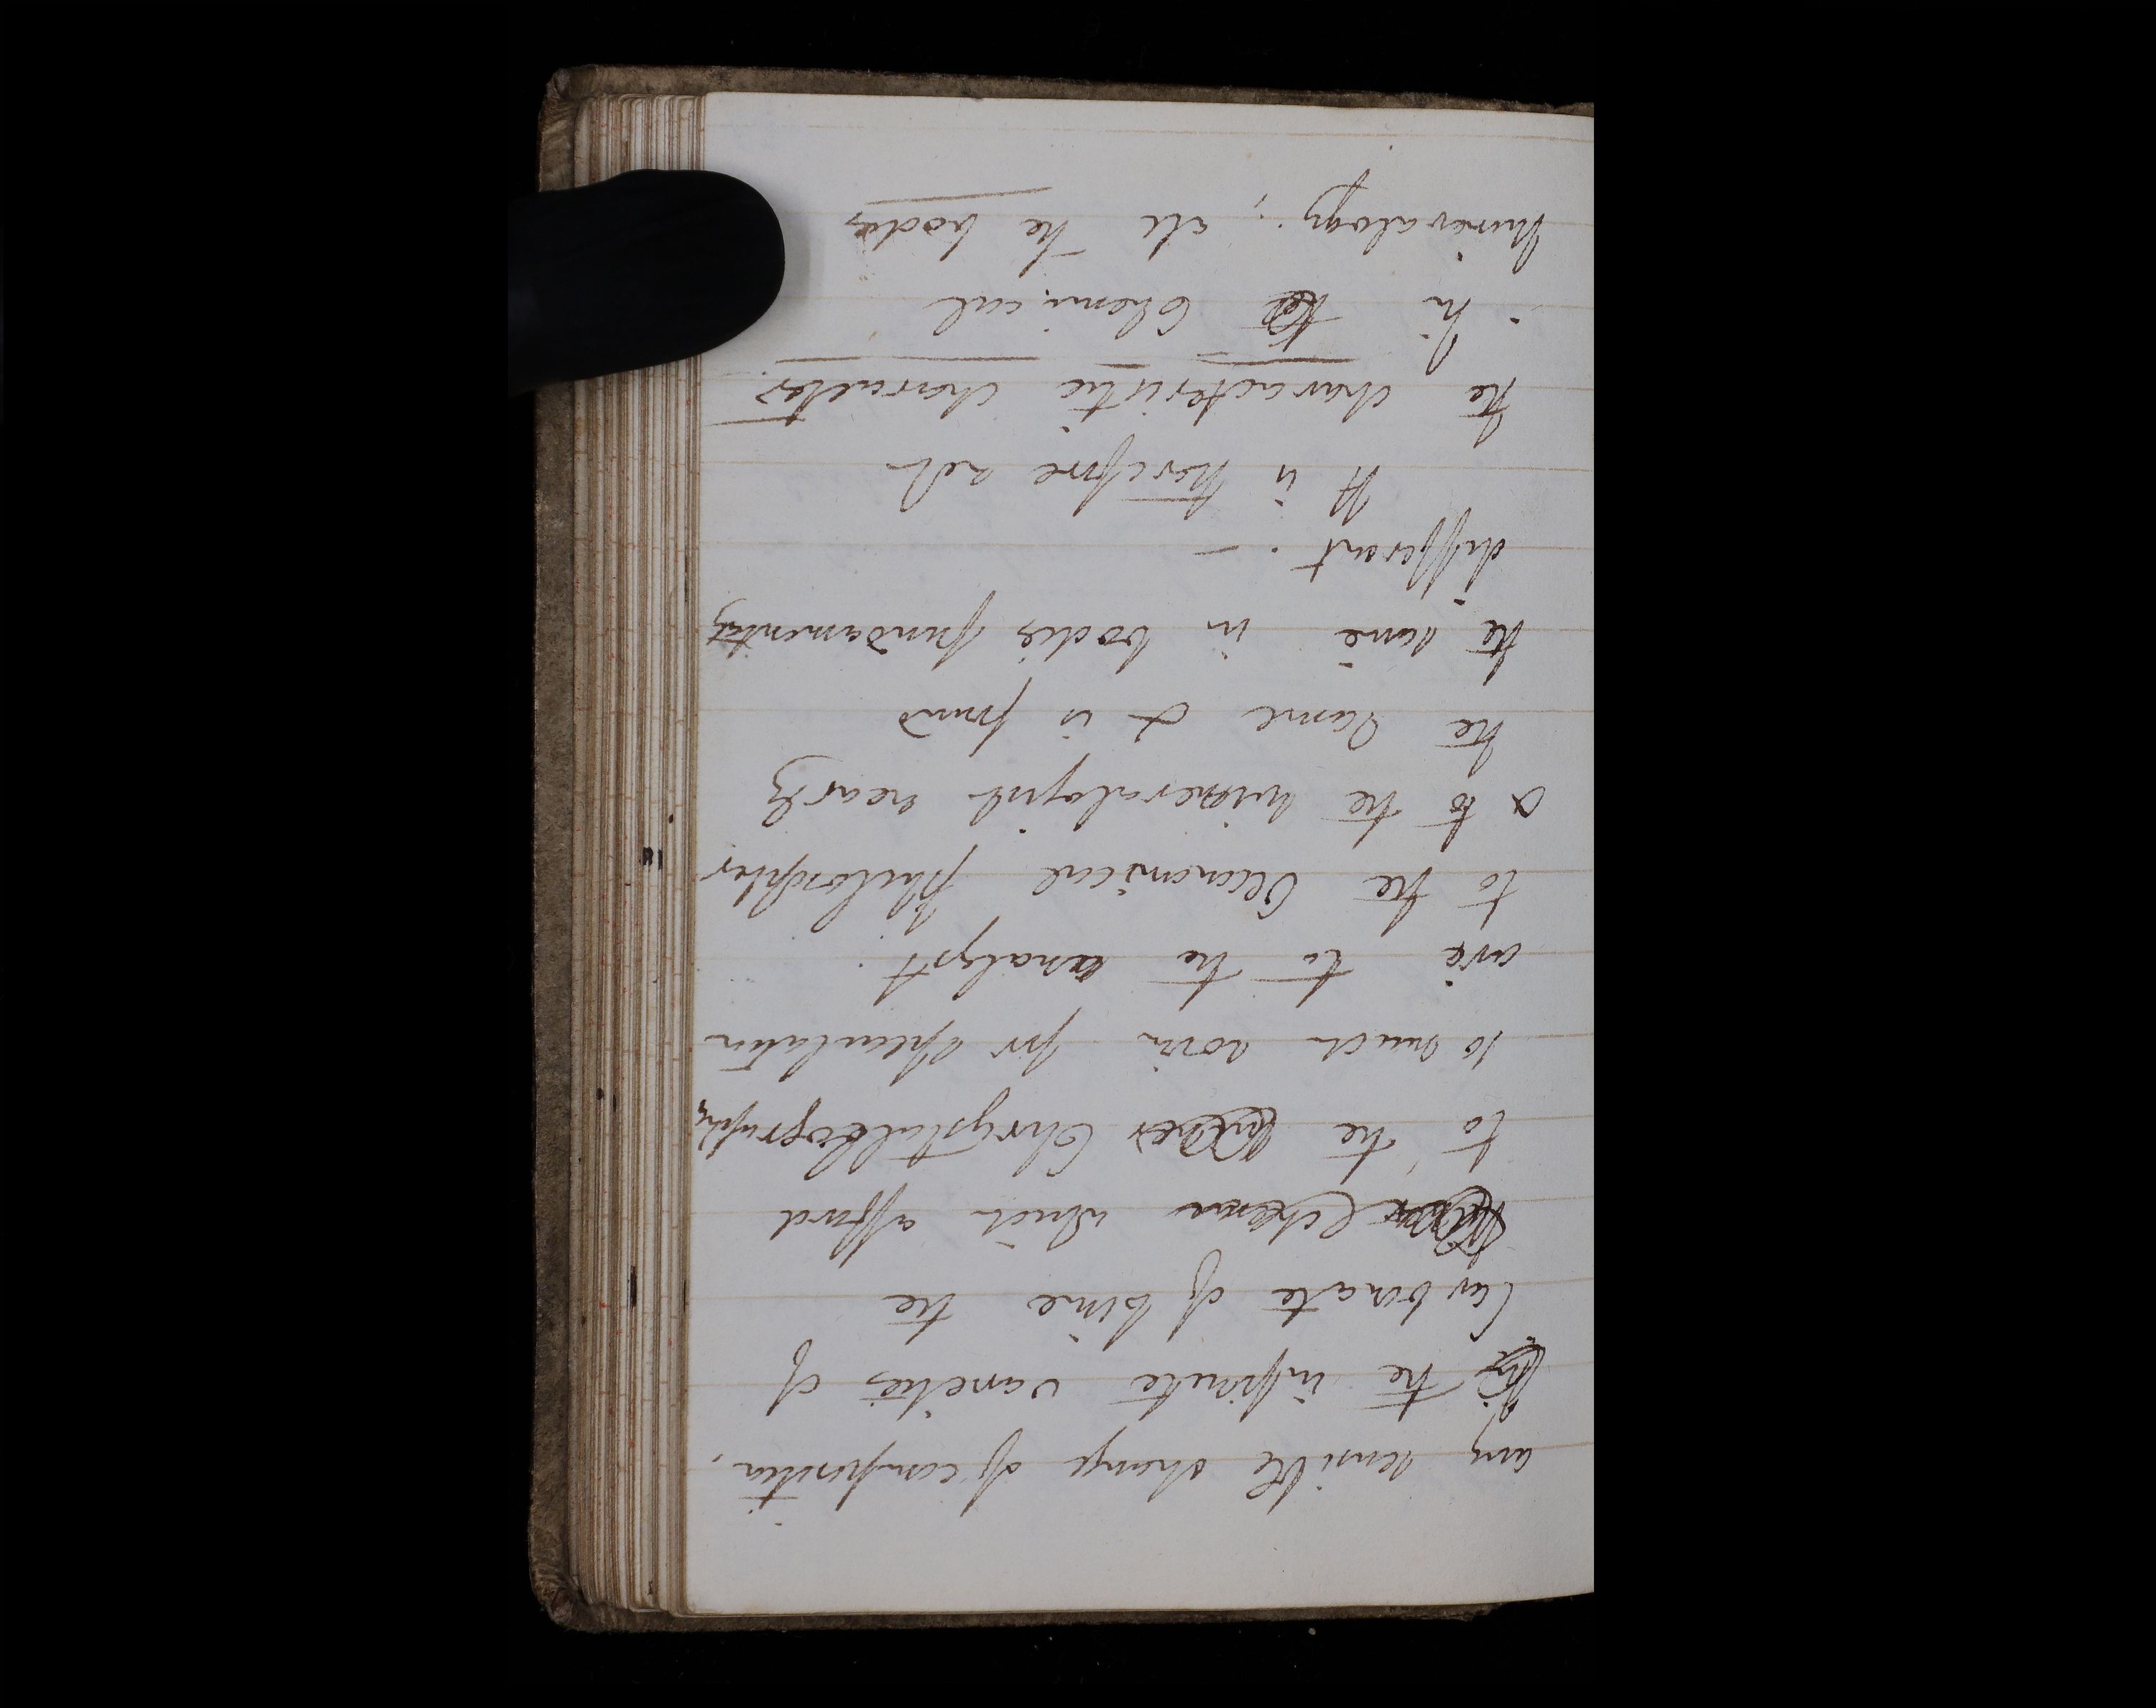 any sensible change of composition,
the infinite varieties of
Carbonate of lime the
which afford
to the Chrystallography
so much room for speculation
are to the analyst
to the Oeconomical philosopher
& to the mineralogist nearly
the same & is found
the same in bodies fundamentaly
different. —
It is therefore not
the characteristic character
in Chemical
mineralogy; all the bodies